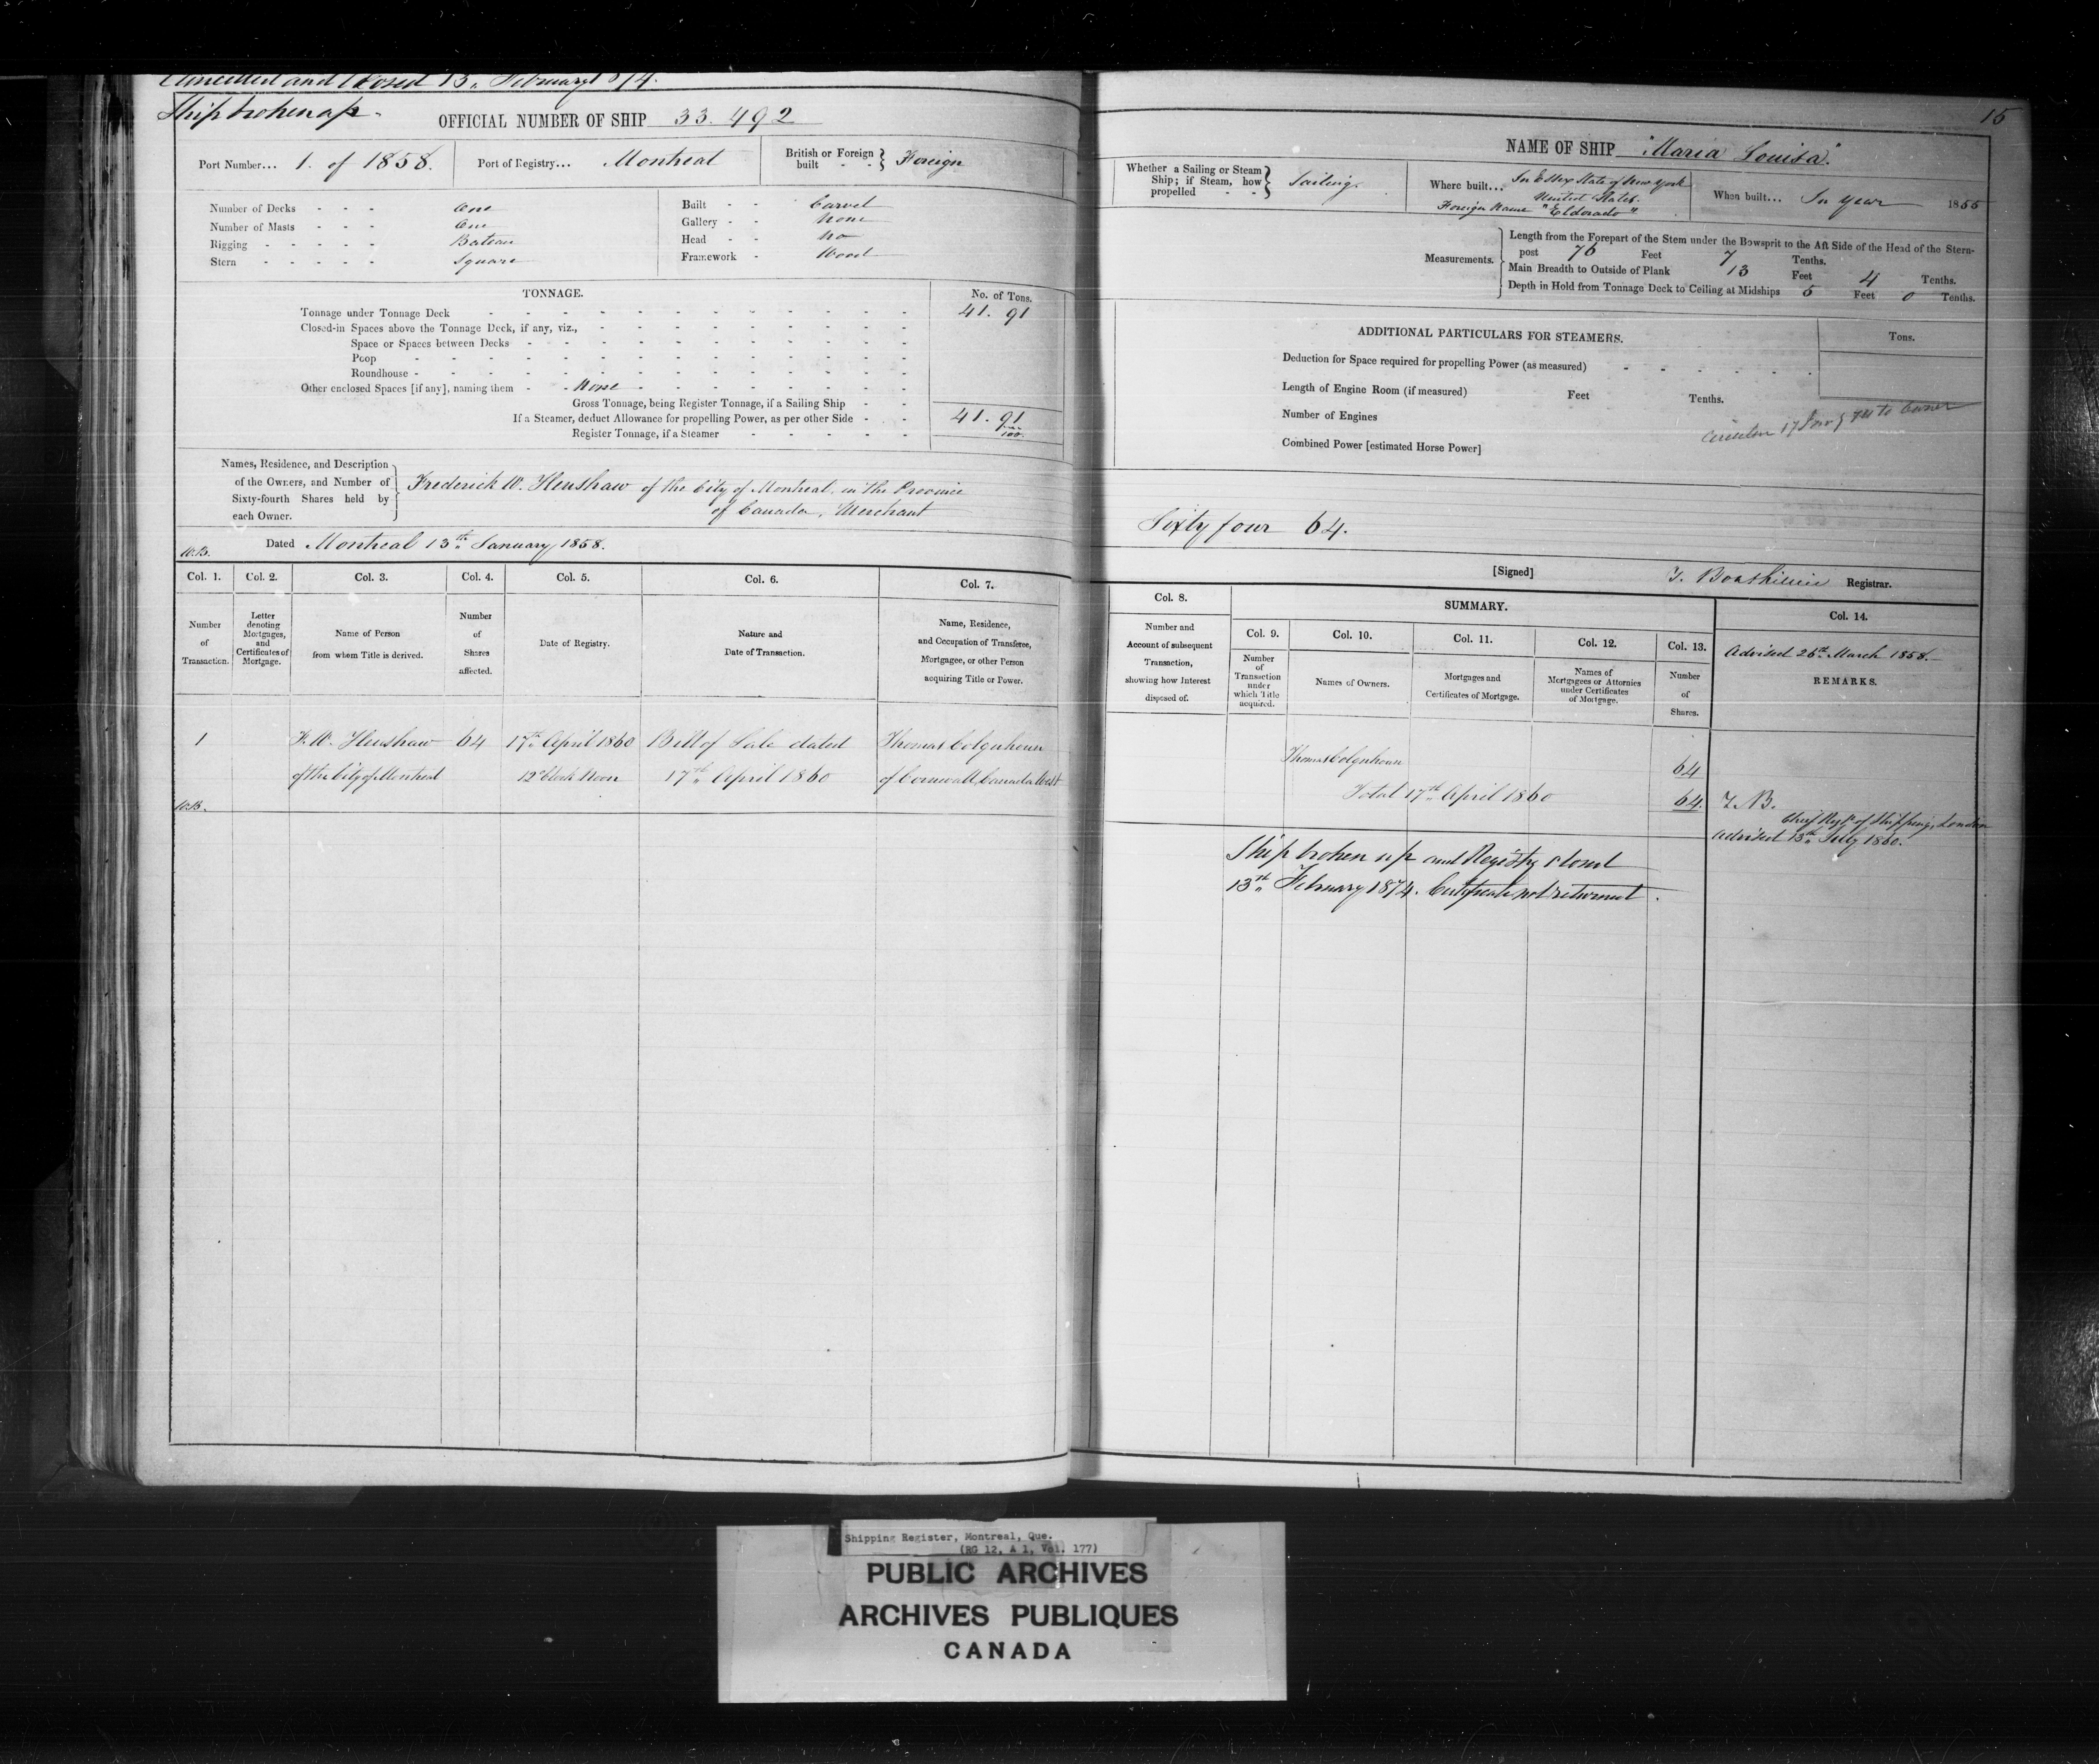 Cancelled and Closed 13th February 1874.
Ship broken up.
OFFICIAL NUMBER OF SHIP 33.492
Port Number... 1. of 1858. Port of Registry... Montreal British or Foreign built - - } Foreign
Number of Decks - - - One
Number of Masts - - - One
Rigging - - - - - Bateau
Stern - - - - - Square
Built - - Carvel
Gallery - - None
Head - - No
Framework - Wood
TONNAGE. No. of Tons.
Tonnage under Tonnage Deck 41.91
Closed-in Spaces above the Tonnage Deck, if any, viz.,
Space or Spaces between Decks
Poop
Roundhouse
Other enclosed Spaces [if any], naming them - None
Gross Tonnage, being Register Tonnage, if a Sailing Ship
If a Steamer, deduct Allowance for propelling Power, as per other Side 41.91
Register Tonnage, if a Steamer 100.
Names, Residence, and Description
of the Owners, and Number of
Sixty-fourth Shares held by
each Owner.
Frederick W. Henshaw of the City of Montreal, in the Province
of Canada, Merchant
W.B. Dated Montreal 13th January, 1858.
Col. 1. Col. 2. Col. 3. Col. 4. Col. 5. Col. 6. Col. 7.
Number of Transaction.
Letter denoting Mortgages, and Certificates of Mortgage.
Name of Person from whom Title is derived.
Number of Shares affected.
Date of Registry.
Nature and Date of Transaction.
Name, Residence, and Occupation of Transferee, Mortgagee, or other Person acquiring Title or Power.
1 F. W. Henshaw 64 17th April 1860 Bill of Sale dated Thomas Colquhoun
of the City of Montreal 12 o'Clock Noon 17th April 1860 of Cornwall, Canada West
W.B.
15
NAME OF SHIP "Maria Louisa".
Whether a Sailing or Steam Ship; if Steam, how propelled - - } Sailing.
Where built... In Essex State of New York
United States.
Foreign Name "Eldorado"
When built... In year 1855
Measurements.
Length from the Forepart of the Stem under the Bowsprit to the Aft Side of the Head of the Stern-
post 76 Feet 7 Tenths.
Main Breadth to Outside of Plank 13 Feet 4 Tenths.
Depth in Hold from Tonnage Deck to Ceiling at Midships 5 Feet 0 Tenths.
ADDITIONAL PARTICULARS FOR STEAMERS. Tons.
Deduction for Space required for propelling Power (as measured)
Length of Engine Room (if measured) Feet Tenths.
Number of Engines
Combined Power [estimated Horse Power]
to Owner
Sixty four 64.
[Signed] Registrar.
Col. 8. SUMMARY. Col. 14.
Col. 9. Col. 10. Col. 11. Col. 12. Col. 13.
Number and Account of subsequent Transaction, showing how Interest disposed of.
Number of Transaction under which Title acquired.
Names of Owners.
Mortgages and Certificates of Mortgage.
Names of Mortgagees or Attornies under Certificates of Mortgage.
Number of Shares.
Advised 26th March 1858.
REMARKS.
Thomas Colquhoun 64
Total 17th April 1860 64. T.B.
Chief Regr. of Shipping, London
Advised 13th July 1860.
Ship broken up and Registry closed
13th February 1874. Certificate not returned.
Shipping Register, Montreal, Que.
(RG 12, A 1, Vol. 177)
PUBLIC ARCHIVES
ARCHIVES PUBLIQUES
CANADA